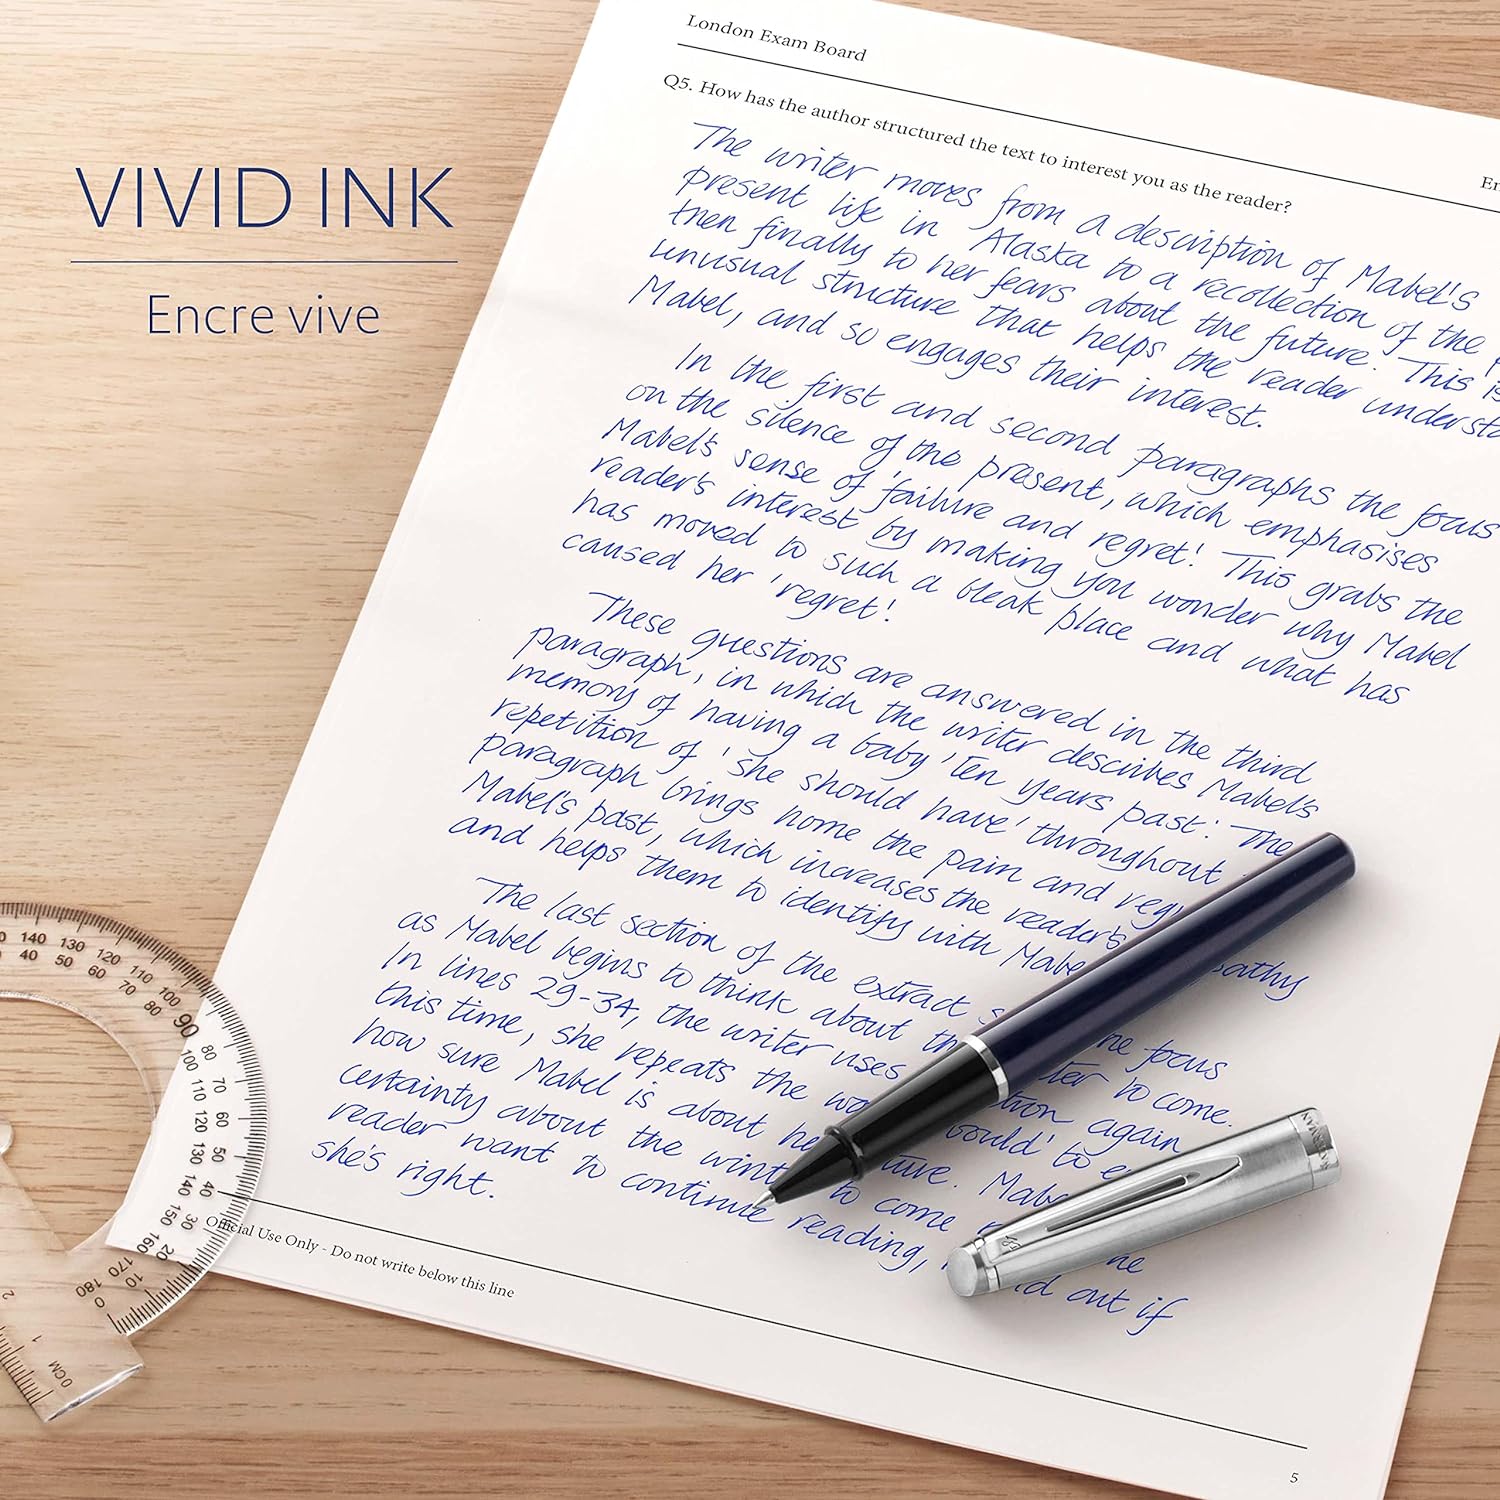 VIVID INK
Encre vive
London Exam Board
Q5. How has the author structured the text to interest you as the reader?
The writer moves from a description of Mabel's
present life in Alaska to a recollection of the
then finally to her fears about the future. This is
unusual structure that helps the reader
Mabel, and so engages their interest.
In the first and second paragraphs the focus
on the silence of the present, which emphasises
Mabel's sense of 'failure and regret'. This grabs the
reader's interest by making you wonder why Mabel
has moved to such a bleak place and what has
caused her 'regret'.
These questions are answered in the third
paragraph, in which the writer describes Mabel's
memory of having a baby 'ten years past'. The
repetition of 'she should have' throughout
paragraph brings home the pain and
Mabel's past, which increases the reader's
and helps them to identify with
The last section of the extract the focus
as Mabel begins to think about to come.
In lines 29-34, the writer uses again
this time, she repeats the would' to
how sure Mabel is about
certainty about the to come
reader want to continue reading, out if
she's right.
Official Use Only - Do not write below this line
5
WATERMAN
140 130 120 110 100 90 80 70 60 50 40 30 20 10 0
40 50 60 70 80 100 110 120 130 140 150 160 170 180
0CM 1 2